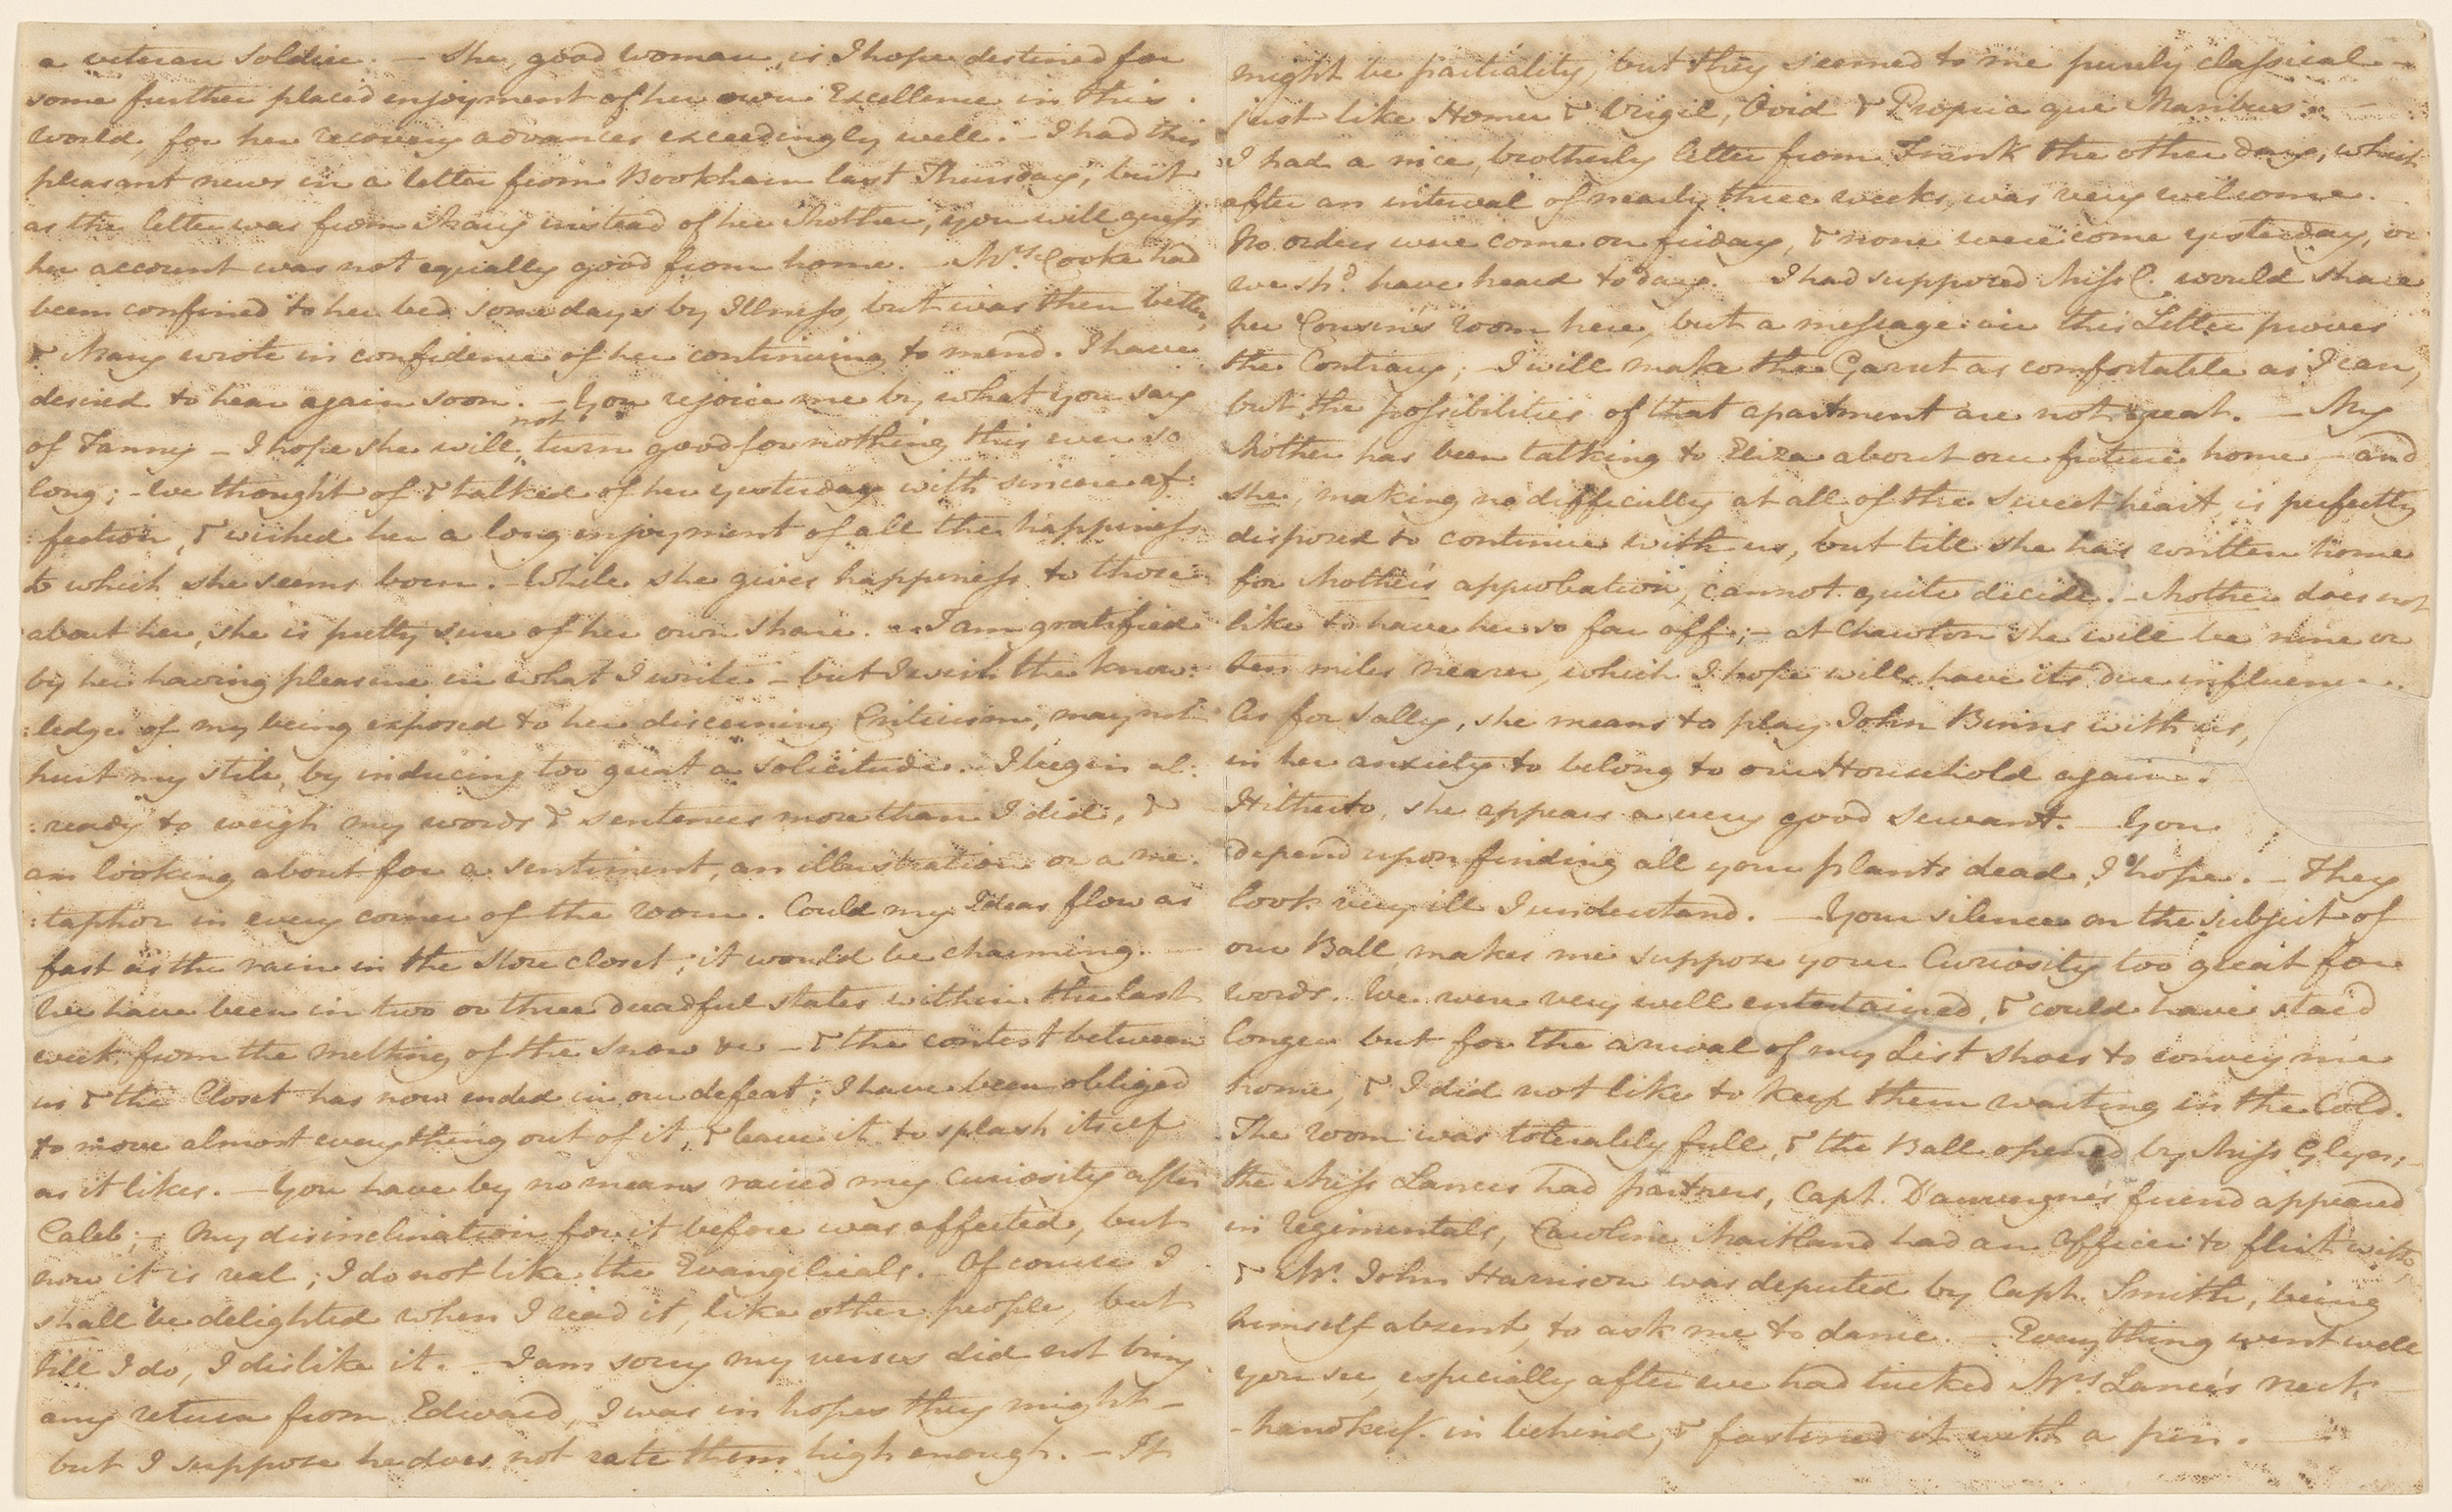 a veteran Soldier. — She, good woman, is I hope destined for
some further placid enjoyment of her own Excellence in this
World, for her recovery advances exceedingly well. — I had this
pleasant news in a letter from Bookham last Thursday, but
as the letter was from Mary instead of her Mother, you will guess
her account was not equally good from home. — Mrs. Cooke had
been confined to her bed some days by Illness, but was then better,
& Mary wrote in confidence of her continuing to mend. I have
desired to hear again soon. — You rejoice me by what you say
of Fanny — I hope she will not turn good for nothing this ever so
long; — We thought of & talked of her yesterday with sincere af:
:fection, & wished her a long enjoyment of all the happiness
to which she seems born. — While she gives happiness to those
about her, she is pretty sure of her own share. — I am gratified
by her having pleasure in what I write — but I wish the know:
:ledge of my being exposed to her discerning Criticism, may not
hurt my stile, by inducing too great a solicitude. I begin al:
:ready to weigh my words & sentences more than I did, &
am looking about for a sentiment, an illustration or a me:
:taphor in every corner of the room. Could my Ideas flow as
fast as the rain in the Store closet, it would be charming. —
We have been in two or three dreadful states within the last
week, from the melting of the snow &c — & the contest between
us & the Closet has now ended in our defeat; I have been obliged
to move almost everything out of it, & leave it to splash itself
as it likes. — You have by no means raised my Curiosity after
Caleb; — My disinclination for it before was affected, but
now it is real; I do not like the Evangelicals. — Of course I
shall be delighted when I read it, like other people, but
till I do, I dislike it. — I am sorry my verses did not bring
any return from Edward, I was in hopes they might —
but I suppose he does not rate them high enough. — It
might be partiality, but they seemed to me purely classical —
just like Homer & Virgil, Ovid & Propria que Maribus. —
I had a nice, brotherly letter from Frank the other day, which
after an interval of nearly three weeks, was very welcome. —
No orders were come on friday, & none were come yesterday, or
we shd. have heard to day. — I had supposed Miss C. would share
her Cousin's room here, but a message in this Letter proves
the Contrary; — I will make the Garret as comfortable as I can,
but the possibilities of that apartment are not great. — My
Mother has been talking to Eliza about our future home — and
she, making no difficulty at all of the Sweetheart, is perfectly
disposed to continue with us, but till she has written home
for Mother's approbation, cannot quite decide. — Mother does not
like to have her so far off; — at Chawton she will be nine or
ten miles nearer, which I hope will have its due influence.
As for Sally, she means to play John Binns with us,
in her anxiety to belong to our Household again.
Hitherto, she appears a very good Servant. — You
depend upon finding all your plants dead, I hope. — They
look very ill I understand. — Your silence on the subject of
our Ball, makes me suppose your Curiosity too great for
words. We were very well entertained, & could have staid
longer but for the arrival of my List shoes to convey me
home, & I did not like to keep them waiting in the Cold.
The room was tolerably full, & the Ball opened by Miss Glyn; —
the Miss Lances had partners, Capt. Dauvergne's friend appeared
in regimentals, Caroline Maitland had an Officer to flirt with,
& Mr. John Harrison was deputed by Capt. Smith, being
himself absent, to ask me to dance. — Everything went well
you see, especially after we had tucked Mrs. Lance's neck:
-handkerf. in behind, & fastened it with a pin. —